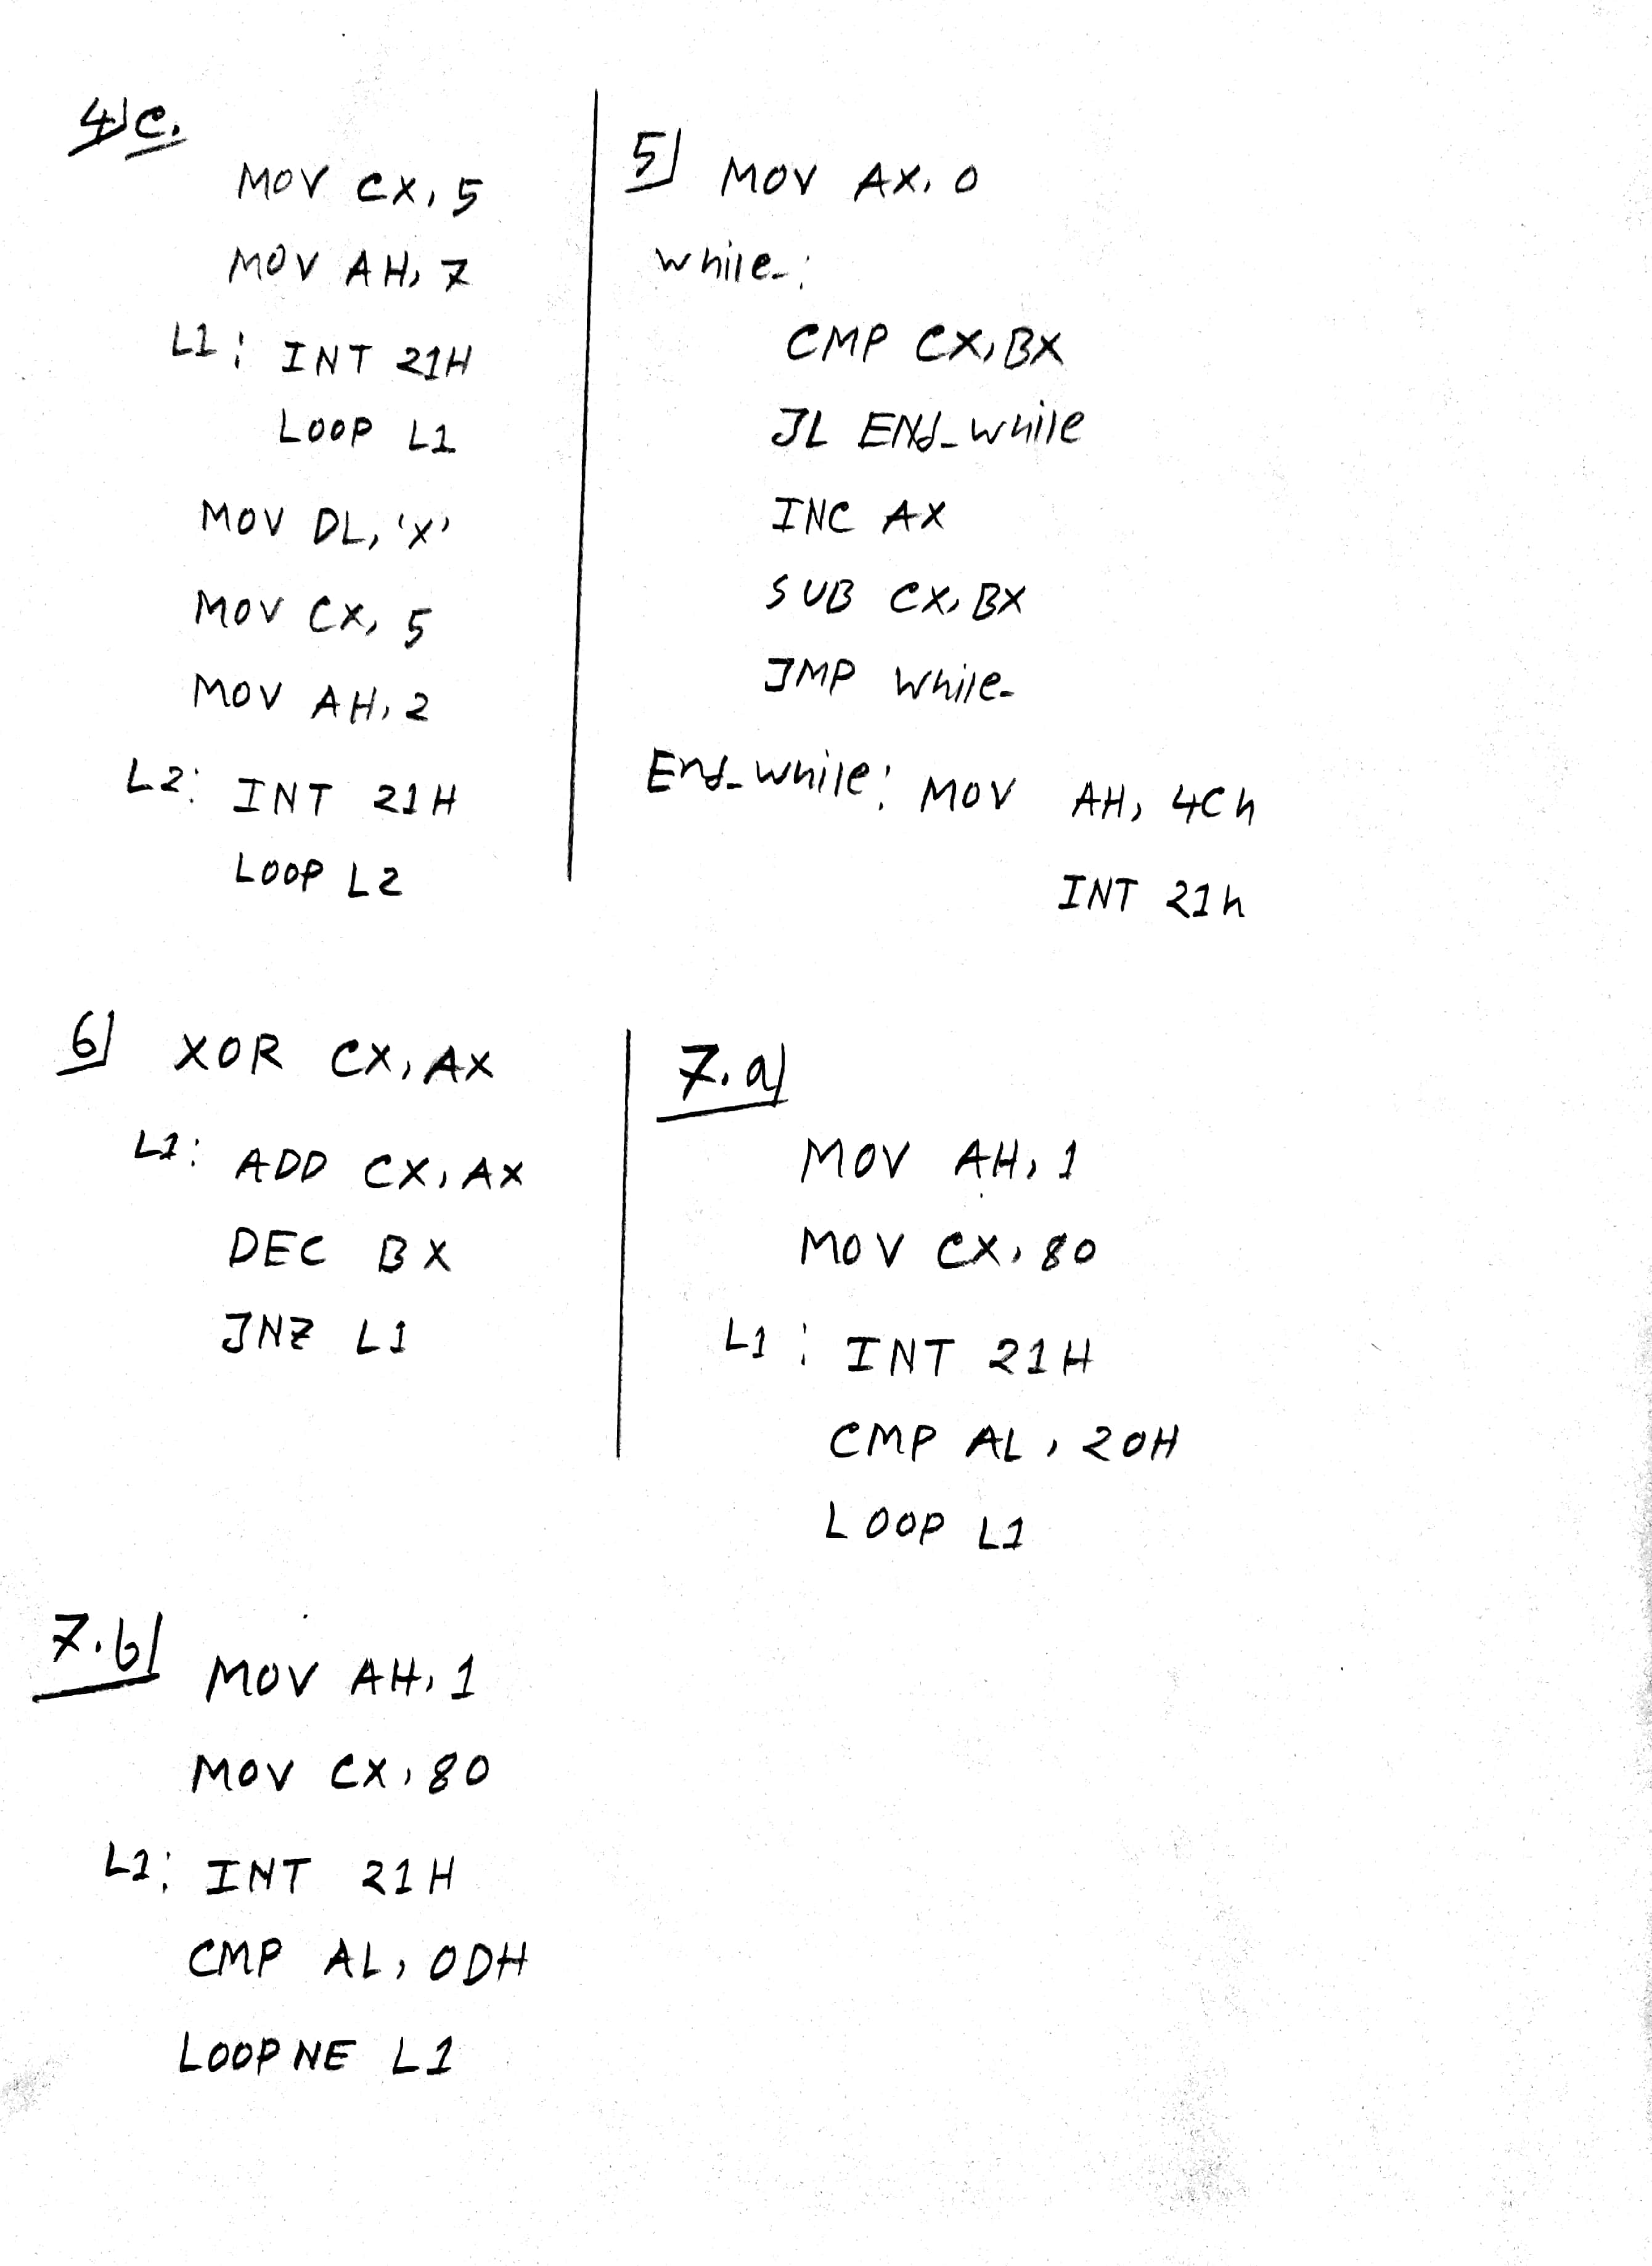 4)c.
MOV CX, 5
MOV AH, 7
L1: INT 21H
LOOP L1
MOV DL, 'X'
MOV CX, 5
MOV AH, 2
L2: INT 21H
LOOP L2
5) MOV AX, 0
while_:
CMP CX, BX
JL END_while
INC AX
SUB CX, BX
JMP while_
End_while: MOV AH, 4Ch
INT 21h
6) XOR CX, AX
L1: ADD CX, AX
DEC BX
JNZ L1
7.a)
MOV AH, 1
MOV CX, 80
L1: INT 21H
CMP AL, 20H
LOOP L1
7.b) MOV AH, 1
MOV CX, 80
L1: INT 21H
CMP AL, 0DH
LOOPNE L1